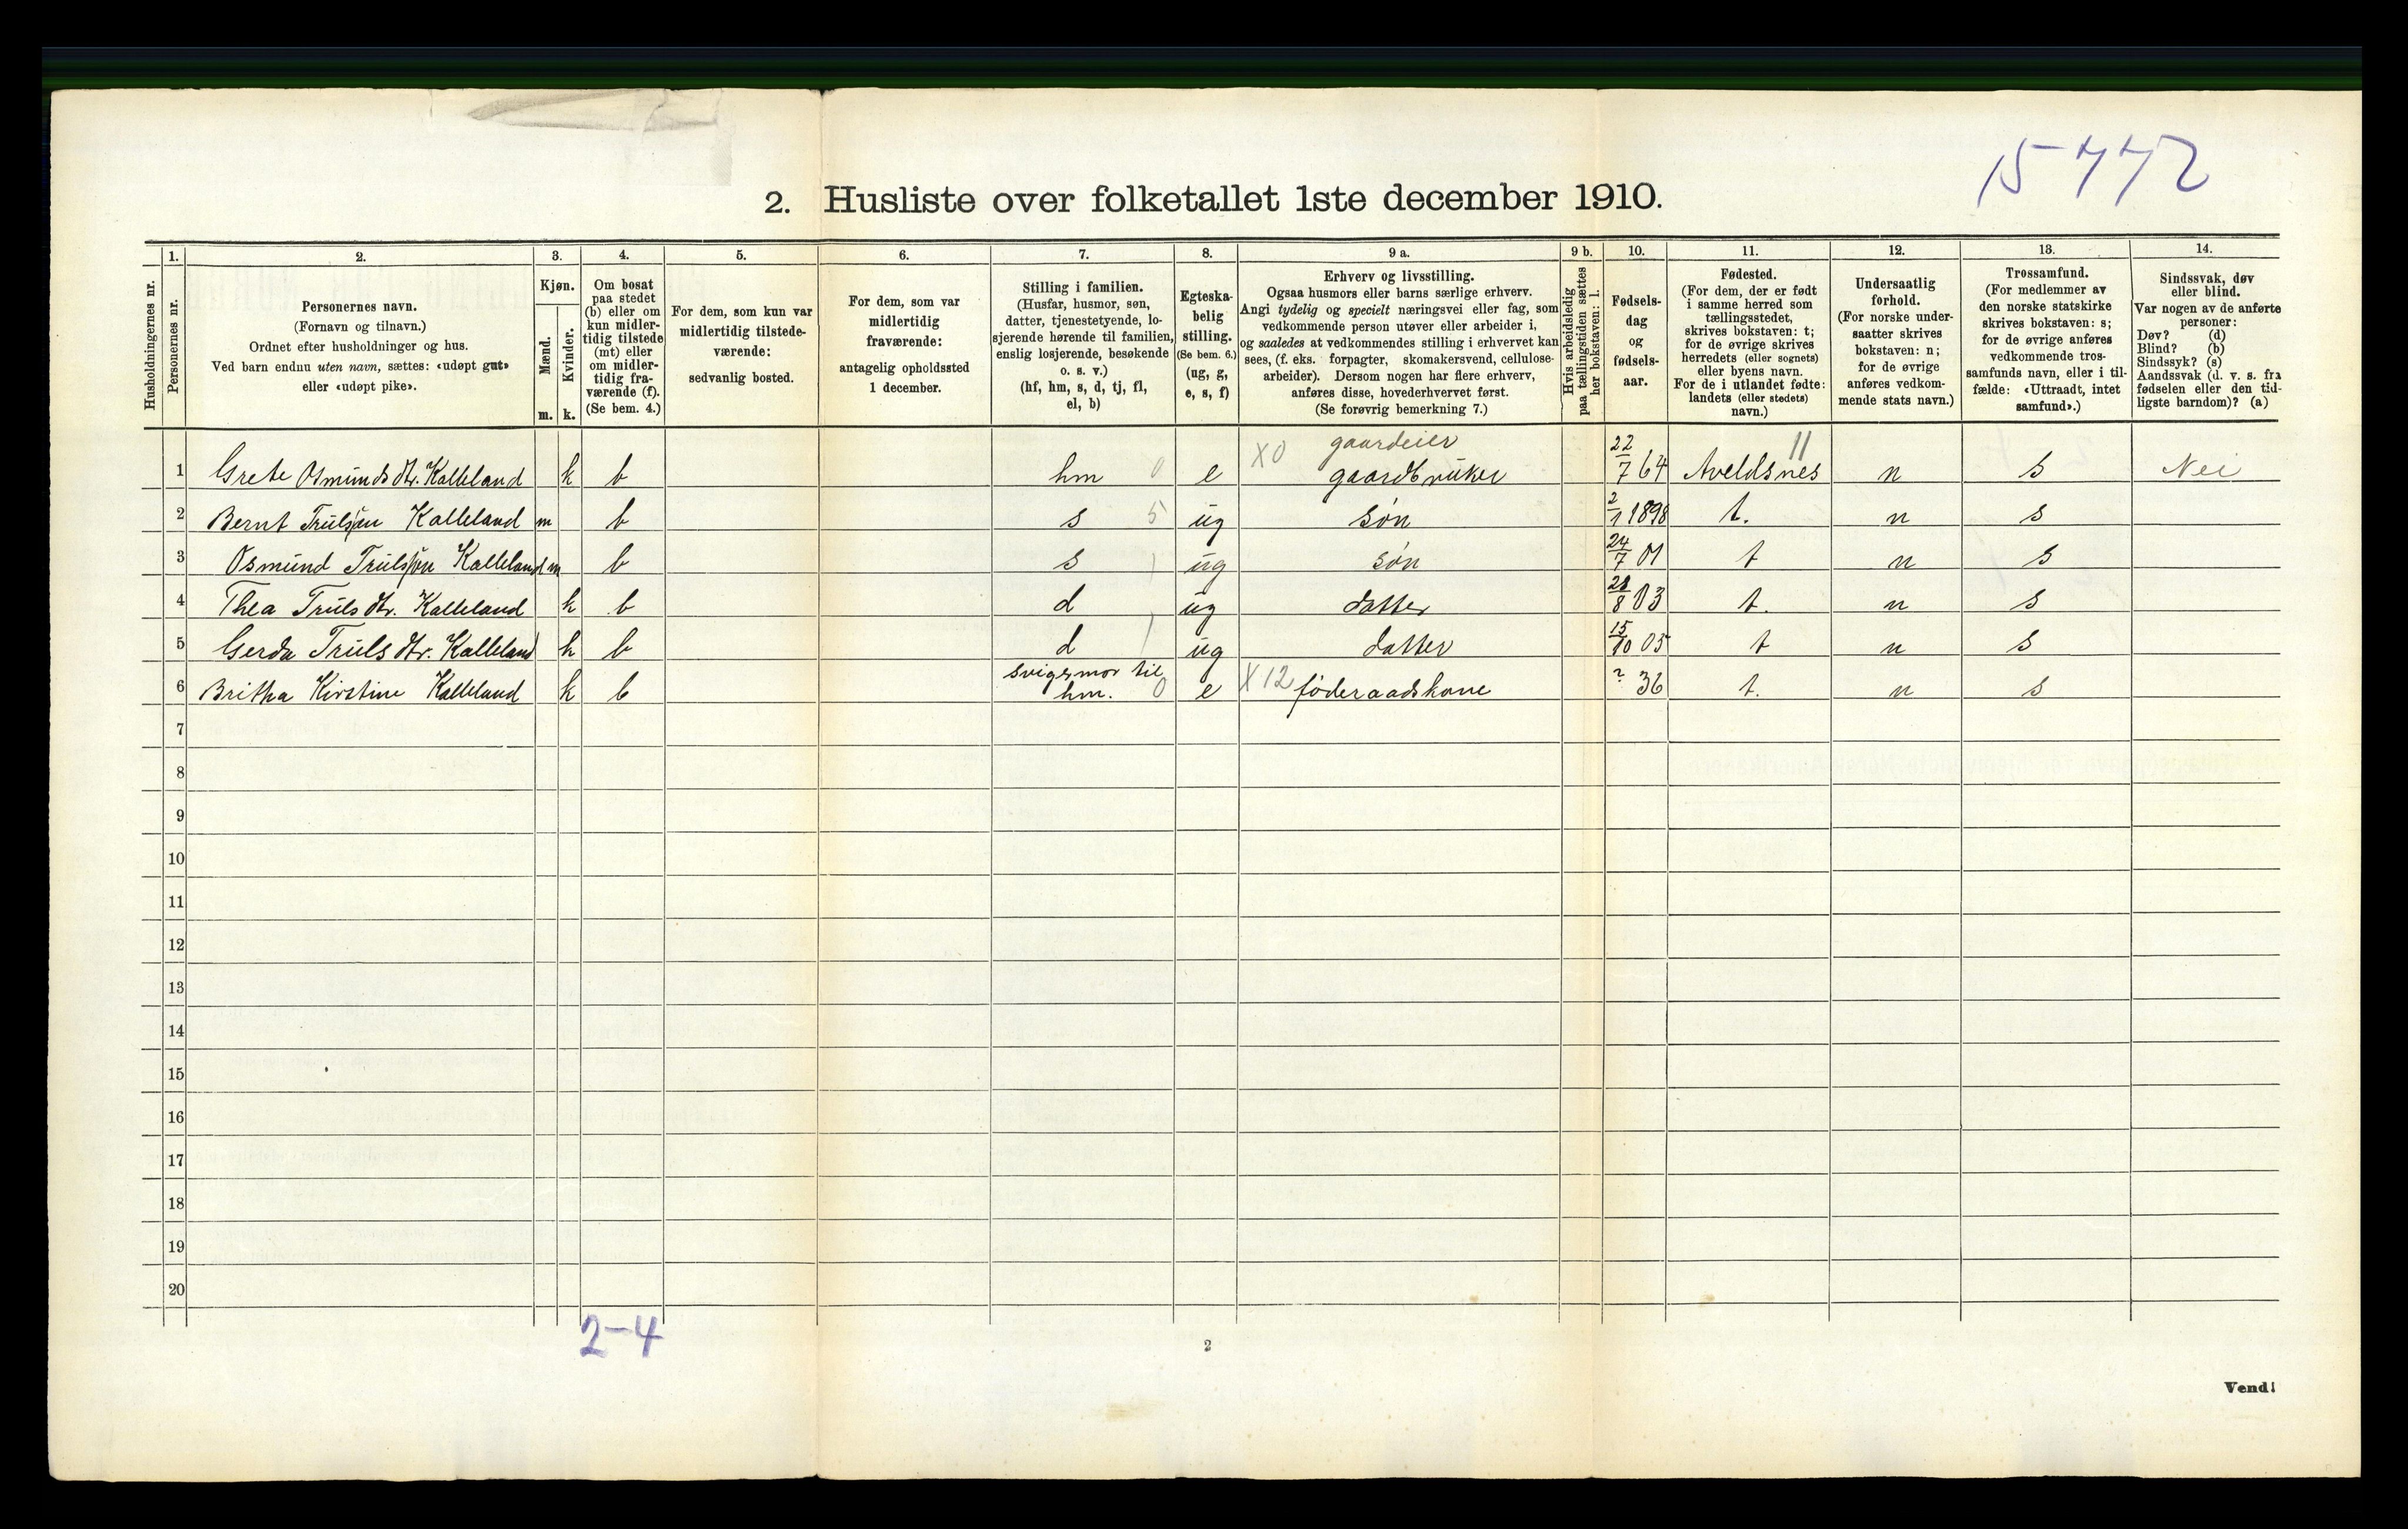 15772
2. Husliste over folketallet 1ste december 1910.
Husholdningernes nr.
1.
Personernes nr.
2.
Personernes navn.
(Fornavn og tilnavn.)
Ordnet efter husholdninger og hus.
Ved barn endnu uten navn, sættes: «udøpt gut»
eller «udøpt pike».
3.
Kjøn.
Mænd.
Kvinder.
m. k.
4.
Om bosat
paa stedet
(b) eller om
kun midler-
tidig tilstede
(mt) eller
om midler-
tidig fra-
værende (f).
(Se bem. 4.)
5.
For dem, som kun var
midlertidig tilstede-
værende:
sedvanlig bosted.
6.
For dem, som var
midlertidig
fraværende:
antagelig opholdssted
1 december.
7.
Stilling i familien.
(Husfar, husmor, søn,
datter, tjenestetyende, lo-
sjerende hørende til familien,
enslig losjerende, besøkende
o. s. v.)
(hf, hm, s, d, tj, fl,
el, b)
8.
Egteska-
belig
stilling.
(Se bem. 6.)
(ug, g,
e, s, f)
9 a.
Erhverv og livsstilling.
Ogsaa husmors eller barns særlige erhverv.
Angi tydelig og specielt næringsvei eller fag, som
vedkommende person utøver eller arbeider i,
og saaledes at vedkommendes stilling i erhvervet kan
sees, (f. eks. forpagter, skomakersvend, cellulose-
arbeider). Dersom nogen har flere erhverv,
anføres disse, hovederhvervet først.
(Se forøvrig bemerkning 7.)
9 b.
Hvis arbeidsledig
paa tællingstiden sættes
her bokstaven: l.
10.
Fødsels-
dag
og
fødsels-
aar.
11.
Fødested.
(For dem, der er født
i samme herred som
tællingsstedet,
skrives bokstaven: t;
for de øvrige skrives
herredets (eller sognets)
eller byens navn.
For de i utlandet fødte:
landets (eller stedets)
navn.)
12.
Undersaatlig
forhold.
(For norske under-
saatter skrives
bokstaven: n;
for de øvrige
anføres vedkom-
mende stats navn.)
13.
Trossamfund.
(For medlemmer av
den norske statskirke
skrives bokstaven: s;
for de øvrige anføres
vedkommende tros-
samfunds navn, eller i til-
fælde: «Uttraadt, intet
samfund».)
14.
Sindssvak, døv
eller blind.
Var nogen av de anførte
personer:
Døv? (d)
Blind? (b)
Sindssyk? (s)
Aandssvak (d. v. s. fra
fødselen eller den tid-
ligste barndom)? (a)
gaardeier 11
1 Grete Osmundsdtr. Kalleland k b hm 0 e X0 gaardbruker 22/7 64 Aveldsnes n s Nei
2 Bernt Trulsøn Kalleland m b s 5 ug søn 2/1 1898 t. n s
3 Osmund Trulsøn Kalleland m b s ug søn 24/7 01 t n s
4 Thea Trulsdtr. Kalleland k b d ug datter 28/8 03 t. n s
5 Gerda Trulsdtr. Kalleland k b d ug datter 15/10 05 t n s
svigermor til
6 Britha Kirstine Kalleland k b hm. 0 e X12 føderaadskone ? 36 t. n s
7
8
9
10
11
12
13
14
15
16
17
18
19
20
2-4
2
Vend!